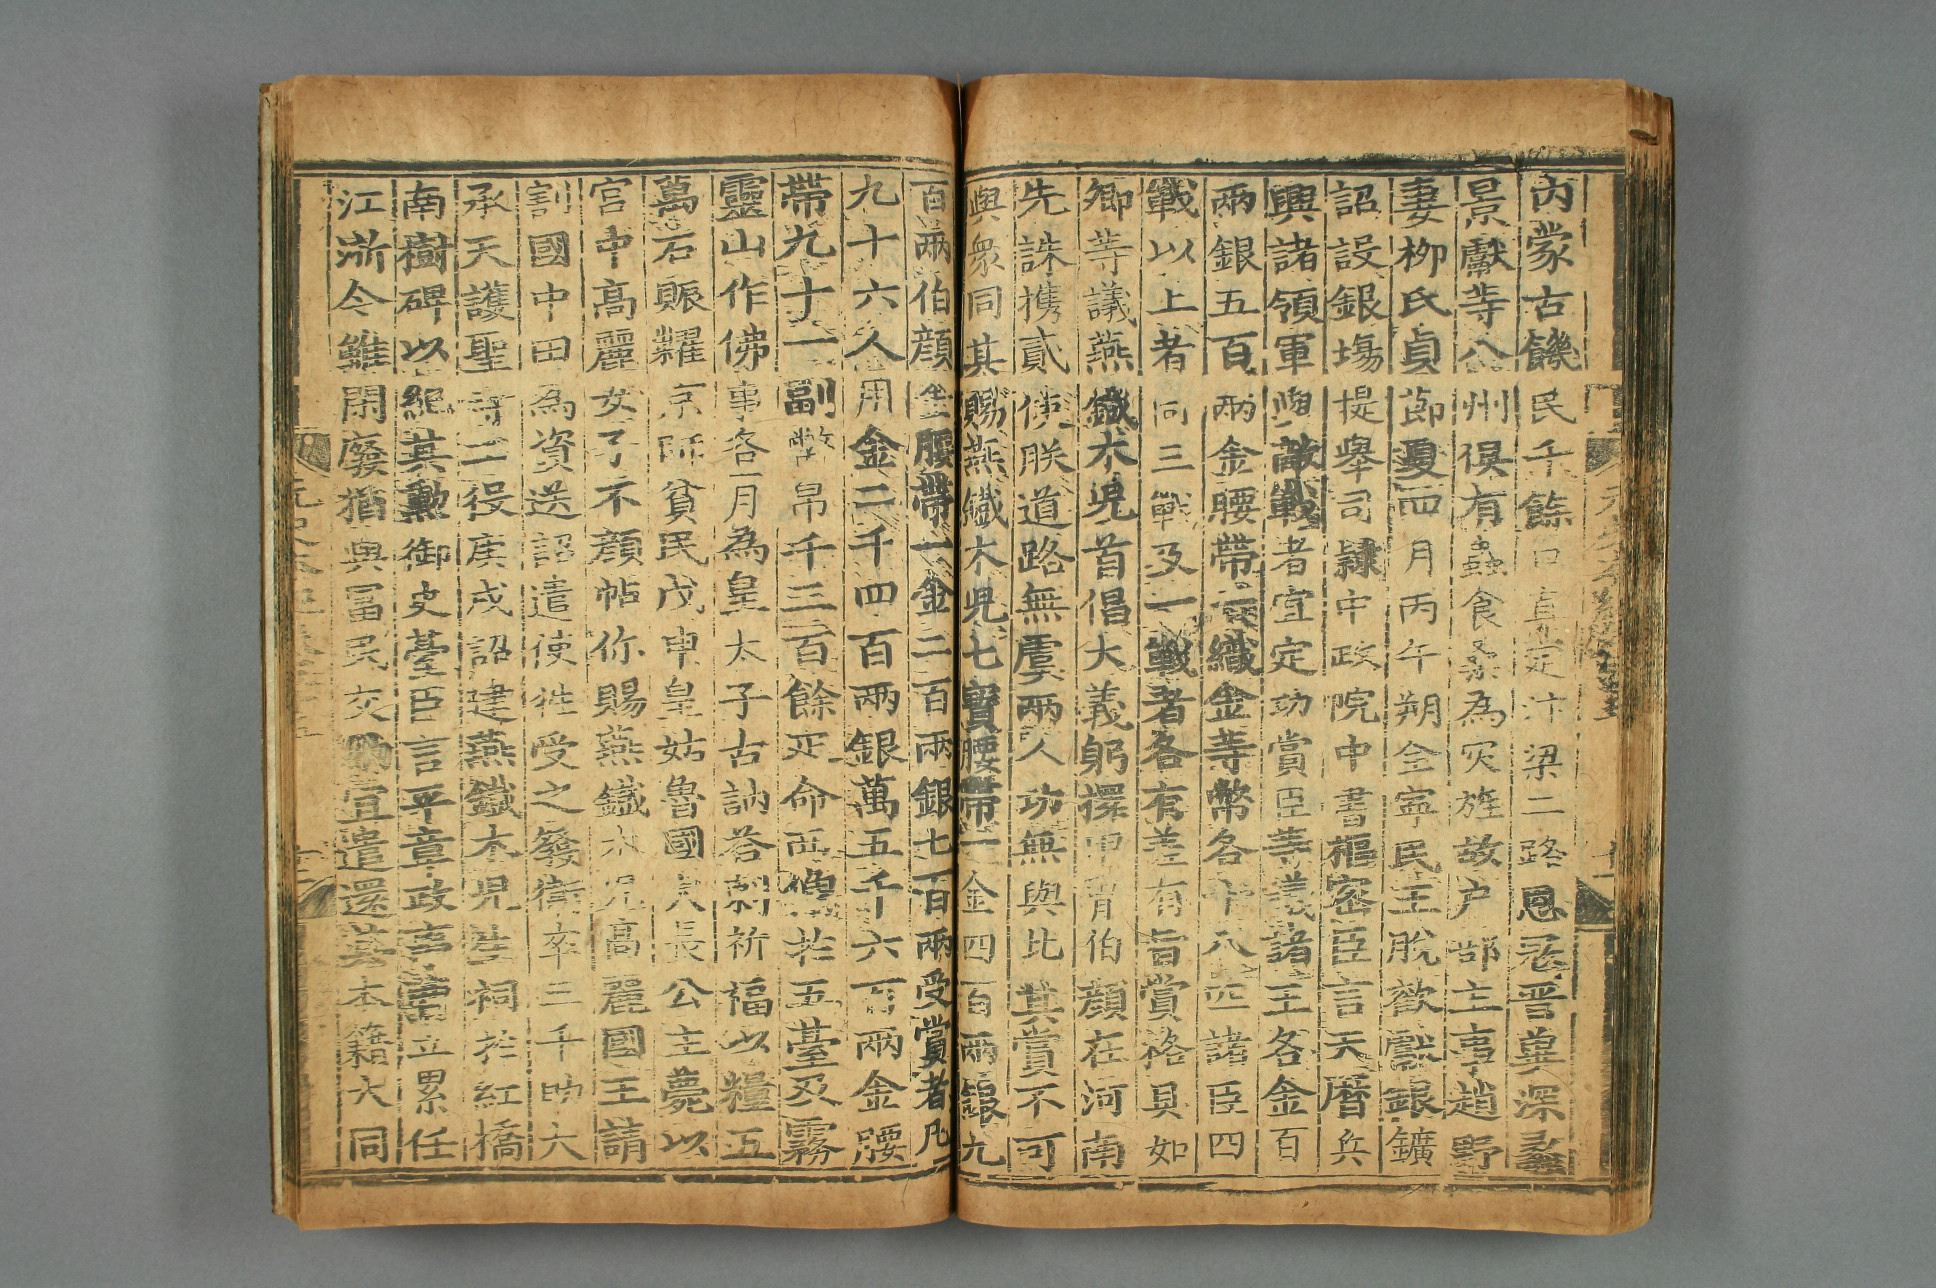 內蒙古饑民千餘口真定汴梁二路恩忍晋冀深蠡
景獻等八州俱有蟲食桑為灾旌故户部主事趙野
妻栁氏貞節夏四月丙午朔全寧民王脫歡獻銀鑛
詔設銀塲提舉司𨽻中政院中書樞密臣言天曆兵
興諸領軍與敵戰者宜定功賞臣等議諸王各金百
兩銀五百兩金腰帶一織金等幣各十八匹諸臣四
戰以上者同三戰及一戰者各有差有旨賞格具如
卿等議燕鐵木児首倡大義躬擐甲胄伯顏在河南
先誅携貳使朕道路無虞兩人功無與比其賞不可
與衆同其賜燕鐵木児七寶腰帶一金四百兩銀九
百兩伯顏金腰帶一金二百兩銀七百兩受賞者凡
九十六人用金二千四百兩銀萬五千六百兩金腰
帶九十一副幣帛千三百餘疋命西僧於五臺及霧
靈山作佛事各一月為皇太子古訥荅剌祈福以糧五
萬石賑糶京師貧民戊申皇姑魯國大長公主薨以
宫中髙麗女子不顔帖你賜燕鐵木児高麗國王請
割國中田為資送詔遣使徃受之發衛卒三千助大
承天護聖寺工役庚戌詔建燕鐵木児生祠於紅橋
南樹碑以紀其勲御史臺臣言平章政事曹立累任
江浙今雖閑廢猶與冨民交納宜遣還其本籍大同